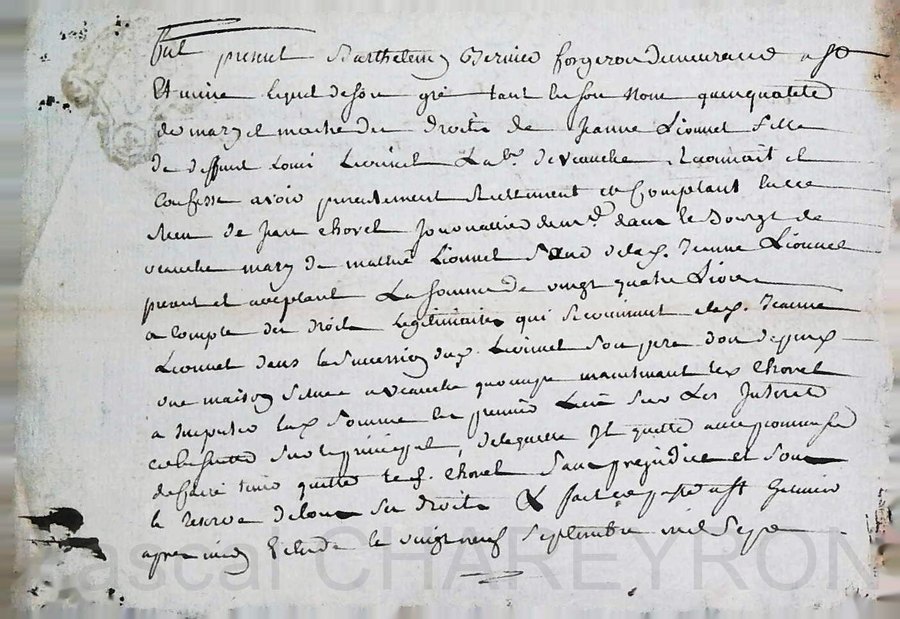 fut present Barthelemy Bernier forgeron demeurand a St
Etienne lequel de son gré tant en son nom quen qualité
de mary et maitre des droits de Jeanne Lionnet fille
de deffunt Louis Lionnet Labr de veauche Reconnait et
Confesse avoir presentement Reellement et Comptant
Receu de Jean Chovet Journallier demt dans le Bourg de
veauche mary de Lionnet Jeanne Lionnet
present et acceptant La Somme de vingt quatre Livres
a Compte des droits Legitimaires qui Jeanne
Lionnet dans la Succession dud. Lionnet Son pere dont depend
une maison Scituee a veauche maintenant led Chovet
a Imputer lad Somme en premier Lieu Sur Les Interets
Sur le principal, de laquelle Il quitte avec promesse
de faire tenir quitte led. Chovet Sans prejudice et Sous
la reserve de tous Ses droits & fait et passé a St
apres midy Etude le vingt neuf Septembre mil Sept
Pascal CHAREYRON